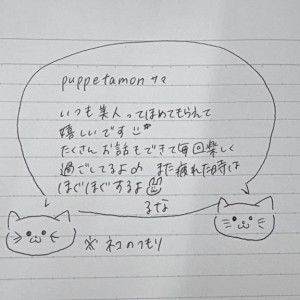 puppetamon サマ
いつも美人ってほめてもらえて
嬉しいです
たくさんお話もできて毎回楽しく
過ごしてるよ♪ また疲れた時は
ほぐほぐするよ
るな
※ネコのつもり